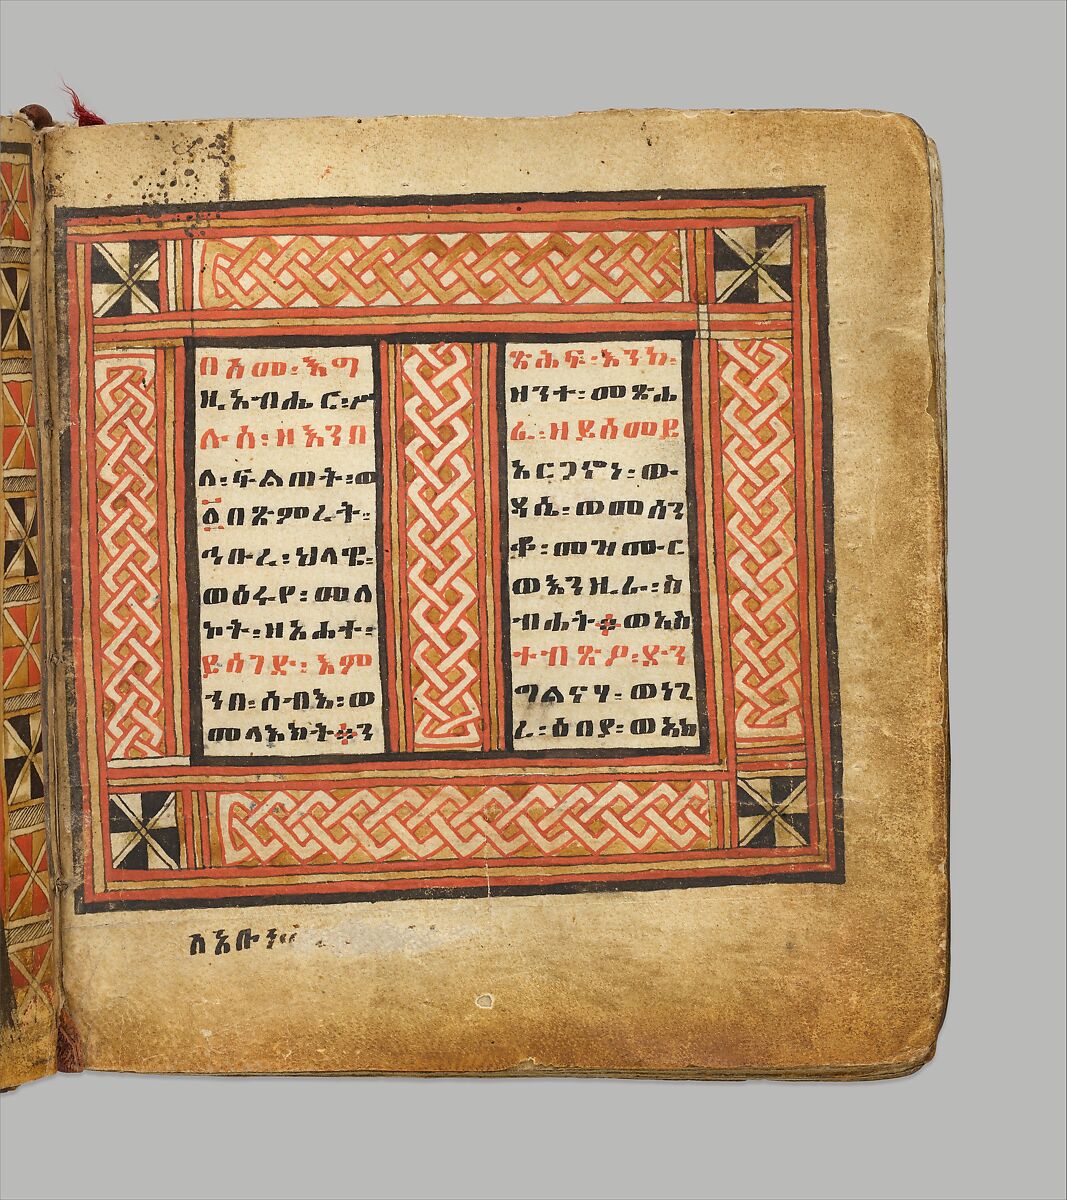 በአመ፡እግ
ዚአብሔር፡ሥ
ሉስ፡ዘእንበ
ለ፡ፍልጠት፡ወ
፩በጽምረት፡
ኅቡረ፡ህላዌ፡
ወዕሩየ፡መለ
ኮት፡ዘአሐተ፡
ይሰገድ፡እም
ኀበ፡ሰብእ፡ወ
መላእክት፨ን
ጽሕፍ፡እንከ፡
ዘንተ፡መጽሐ
ፈ፡ዘይሰመይ
አርጋኖነ፡ው
ዳሴ፡ወመሰን
ቆ፡መዝሙር
ወእንዚራ፡ስ
ብሐት፨ወእስ
ተብጽዖ፡ድን
ግልናሃ፡ወነጊ
ረ፡ዕበያ፡ወአክ